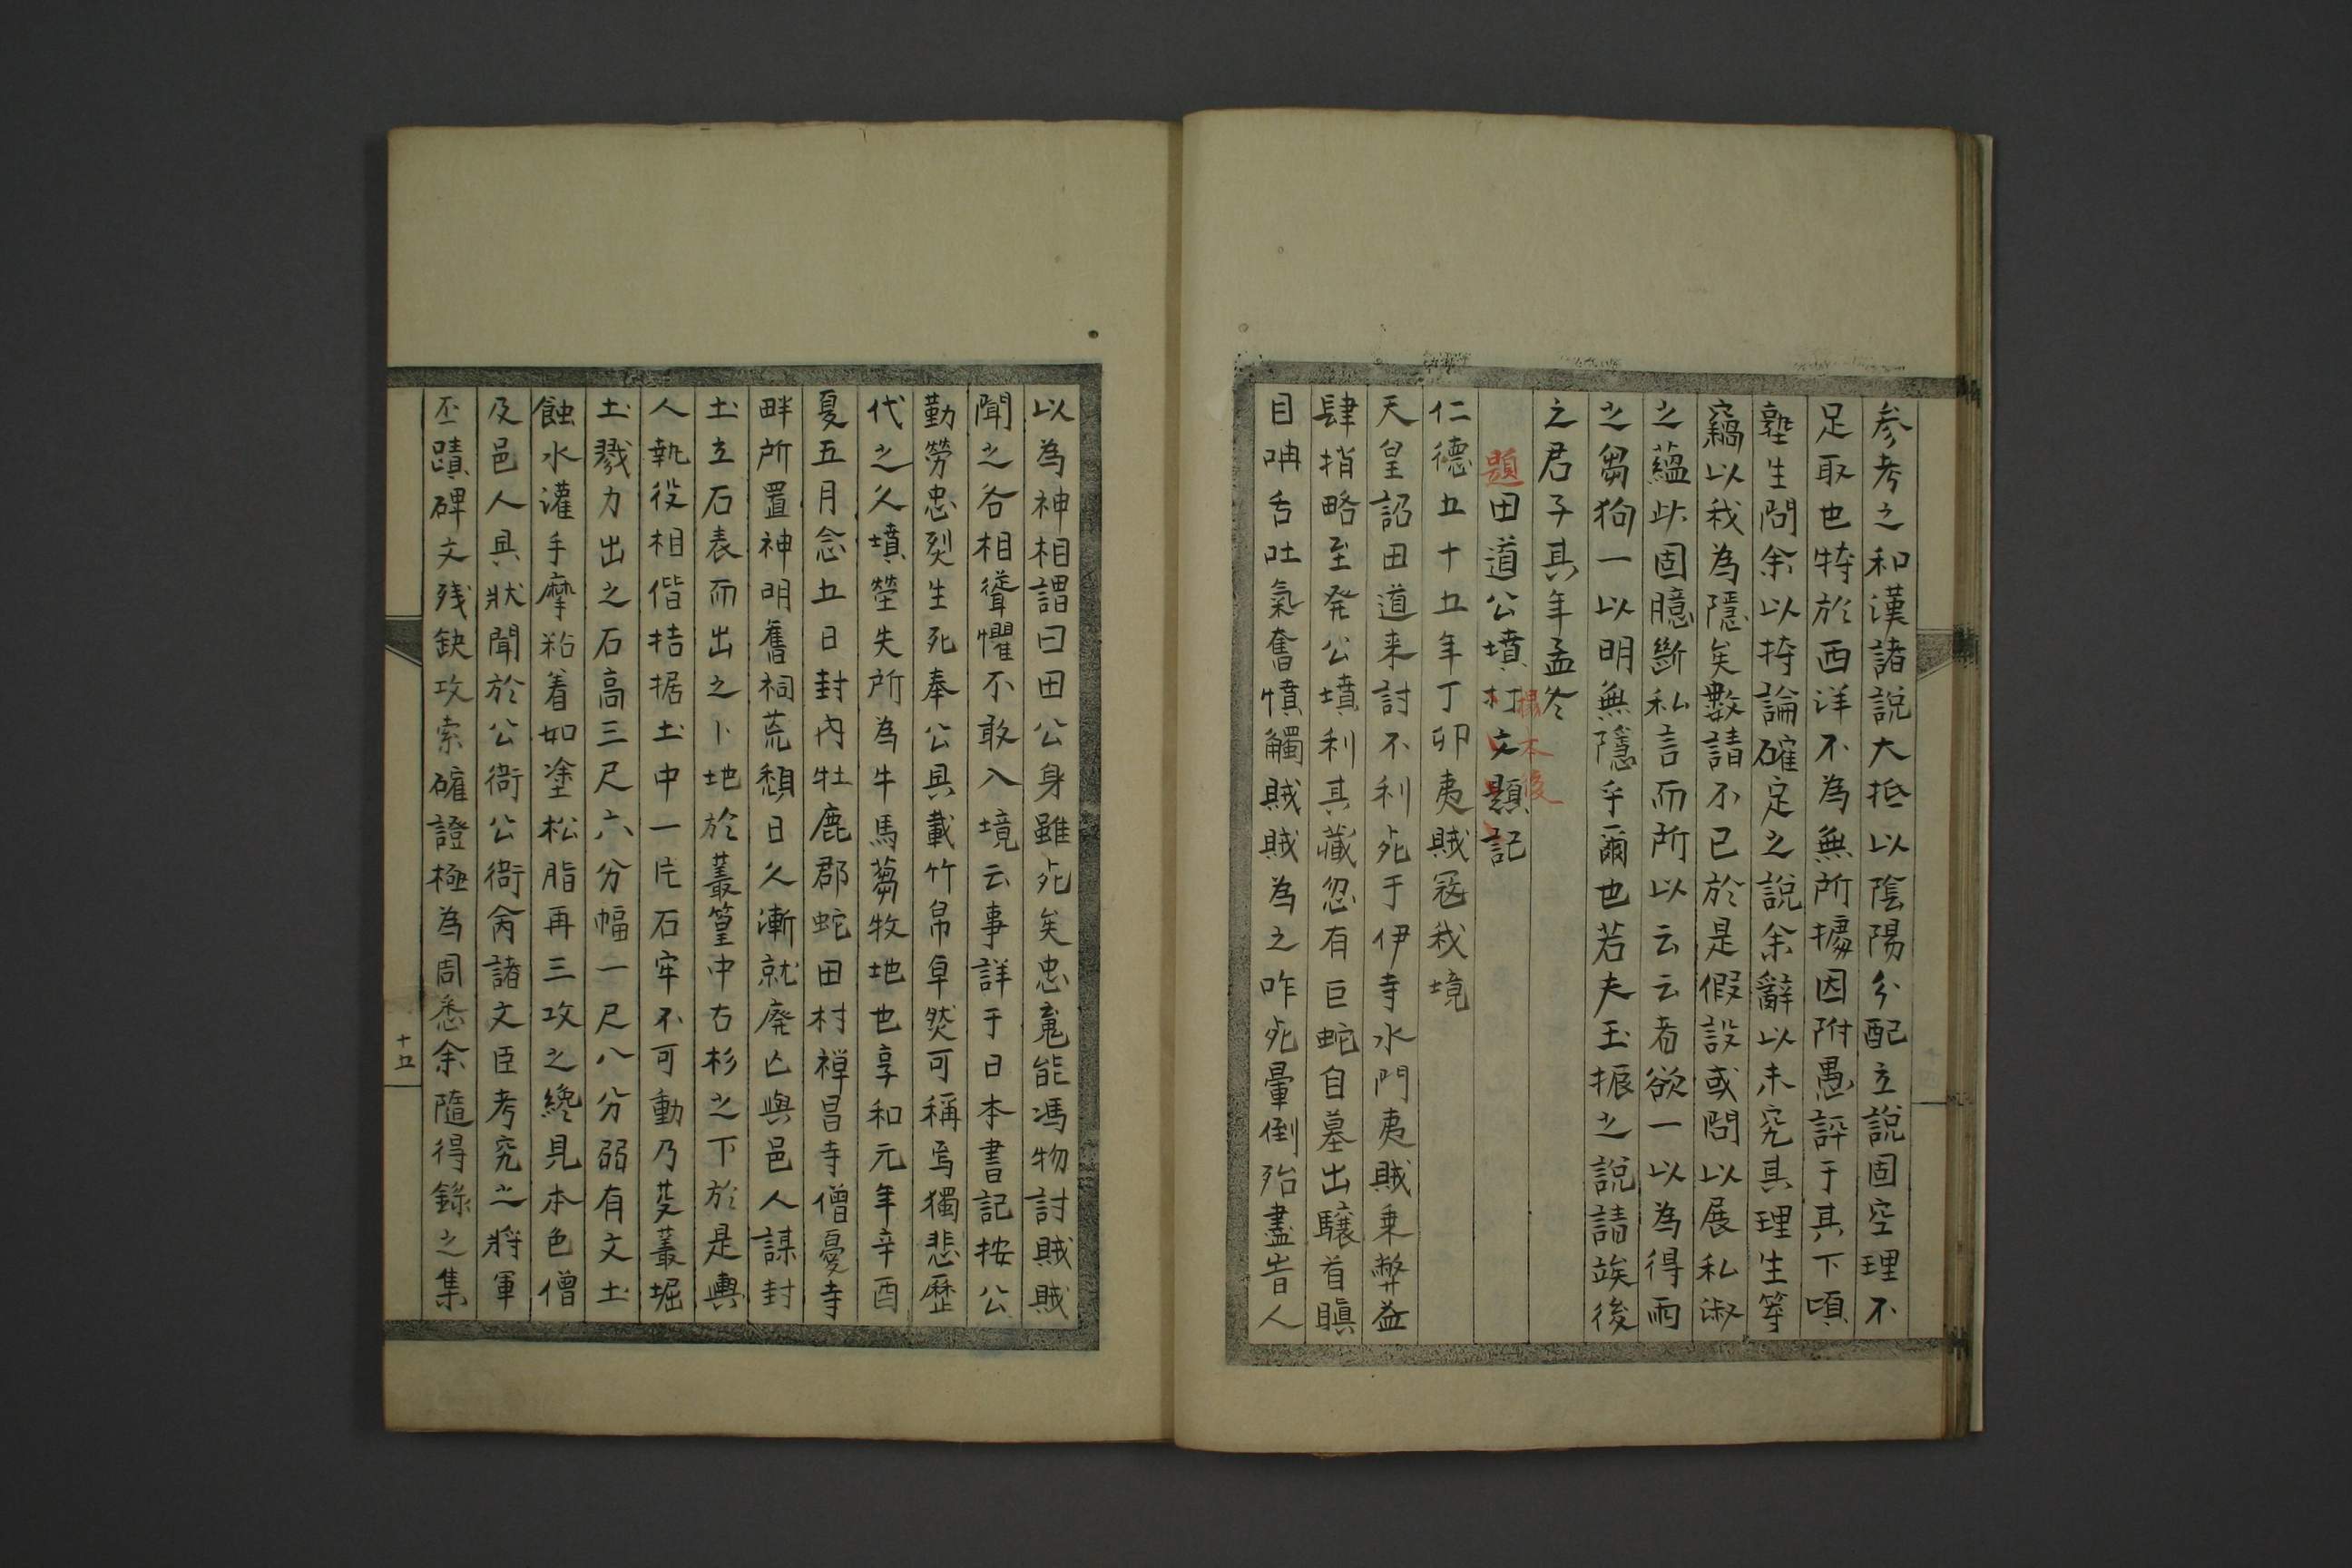 参考之和漢諸說大抵以陰陽分配立說固空理不
足取也特於西洋不為無所據因附愚評于其下頃
塾生問余以特論確定之說余辭以未究其理生等
竊以我為隱矣數請不已於是假設或問以展私淑
之蘊此固臆斷私言而所以云云者欲一以為得雨
之芻狗一以明無隱乎爾也若夫玉振之說請竢後
之君子其年孟冬
題田道公墳村文題記
搨本後
仁德五十五年丁卯夷賊冦我境
天皇詔田道来討不利死于伊寺水門夷賊乗弊益
肆捎略至発公墳利其藏忽有巨蛇自墓出驤首瞋
目呥舌吐氣奮憤觸賊賊為之咋死暈倒殆盡昔人
以為神相謂曰田公身雖死矣忠䰟能馮物討賊賊
聞之各相聳懼不敢入境云事詳于日本書記按公
勤勞忠烈生死奉公具載竹帛卓然可稱焉獨悲歷
代之久墳塋失所為牛馬蒭牧地也享和元年辛酉
夏五月念五日封内牡鹿郡蛇田村禅昌寺僧憂寺
畔所置神明舊祠荒頽日久漸就廃亡與邑人謀封
土立石表而出之卜地於叢篁中古杉之下於是輿
人執役相偕拮据土中一片石牢不可動乃芟叢堀
土戮力出之石高三尺六分幅一尺八分弱有文土
蝕水灌手摩粘着如塗松脂再三攻之纔見本色僧
及邑人具狀聞於公衙公衙俞諸文臣考究之將軍
丕蹟碑文残缺攻索確證極為周悉余隨得錄之集
十五